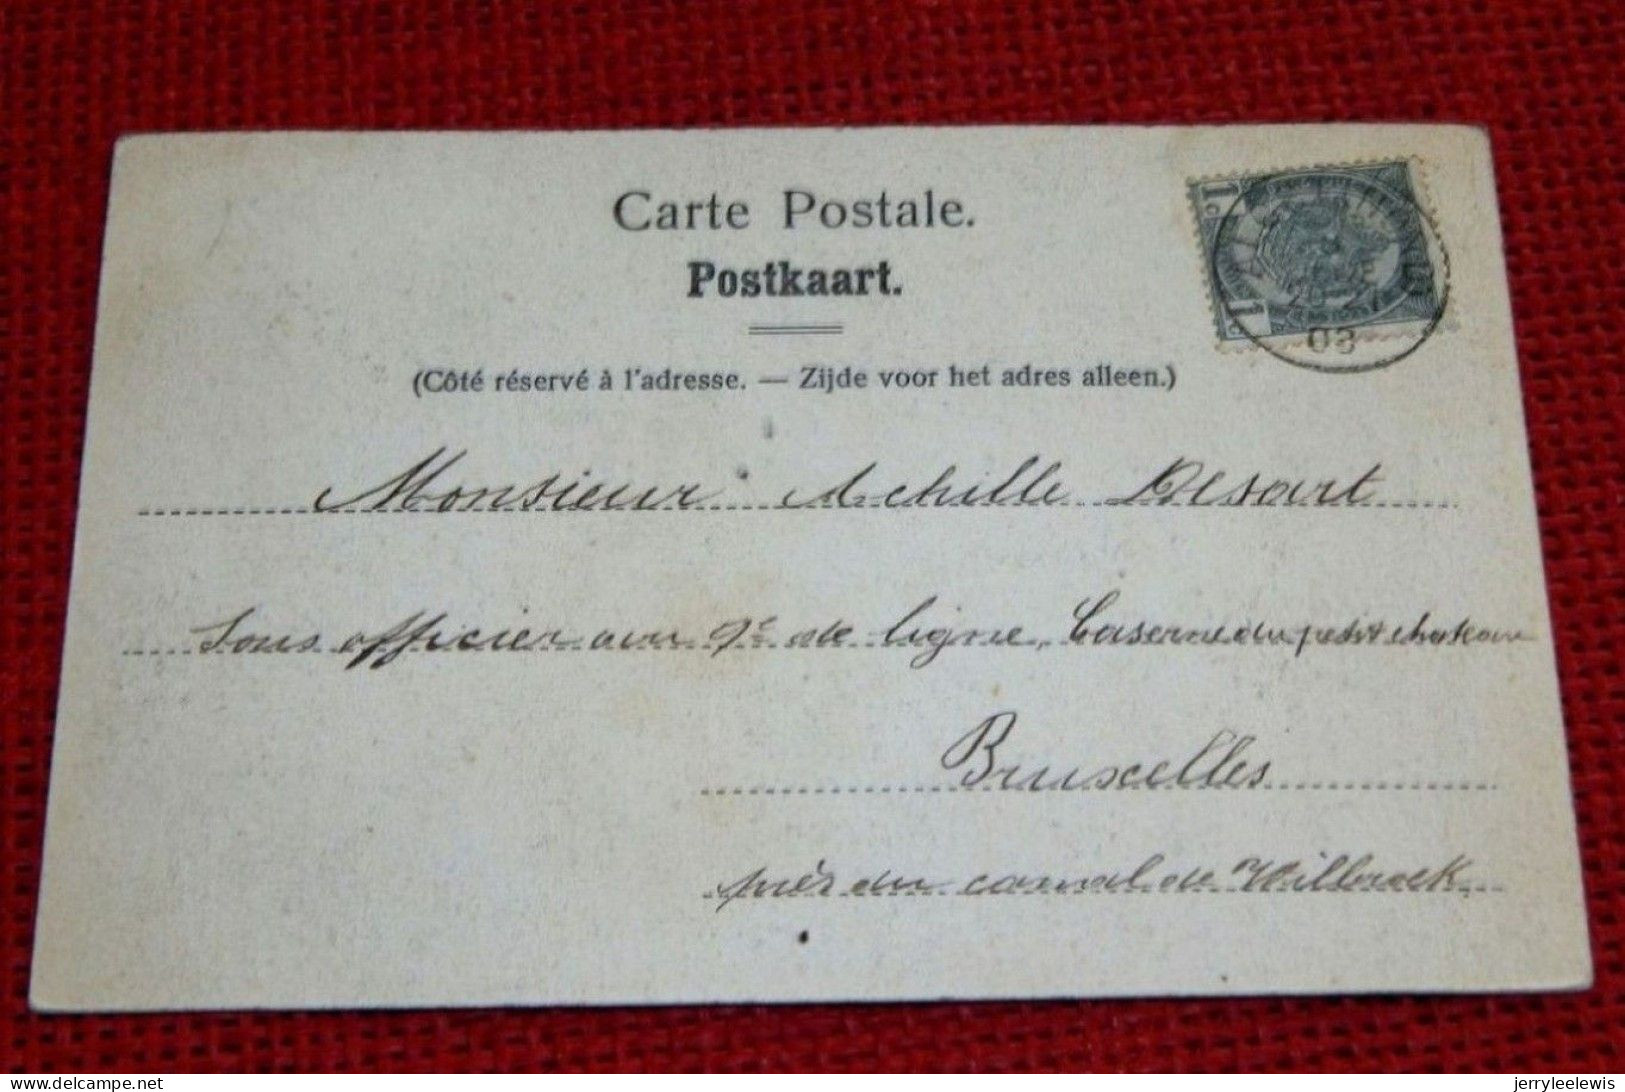 Carte Postale.
Postkaart.
(Côté réservé à l'adresse. — Zijde voor het adres alleen.)
1 c
1 c
03
Monsieur Achille Desart
Sous officier au 9e de ligne, Caserne du petit chateau
Bruxelles
près du canal de Willebroek
delcampe.net
jerryleelewis